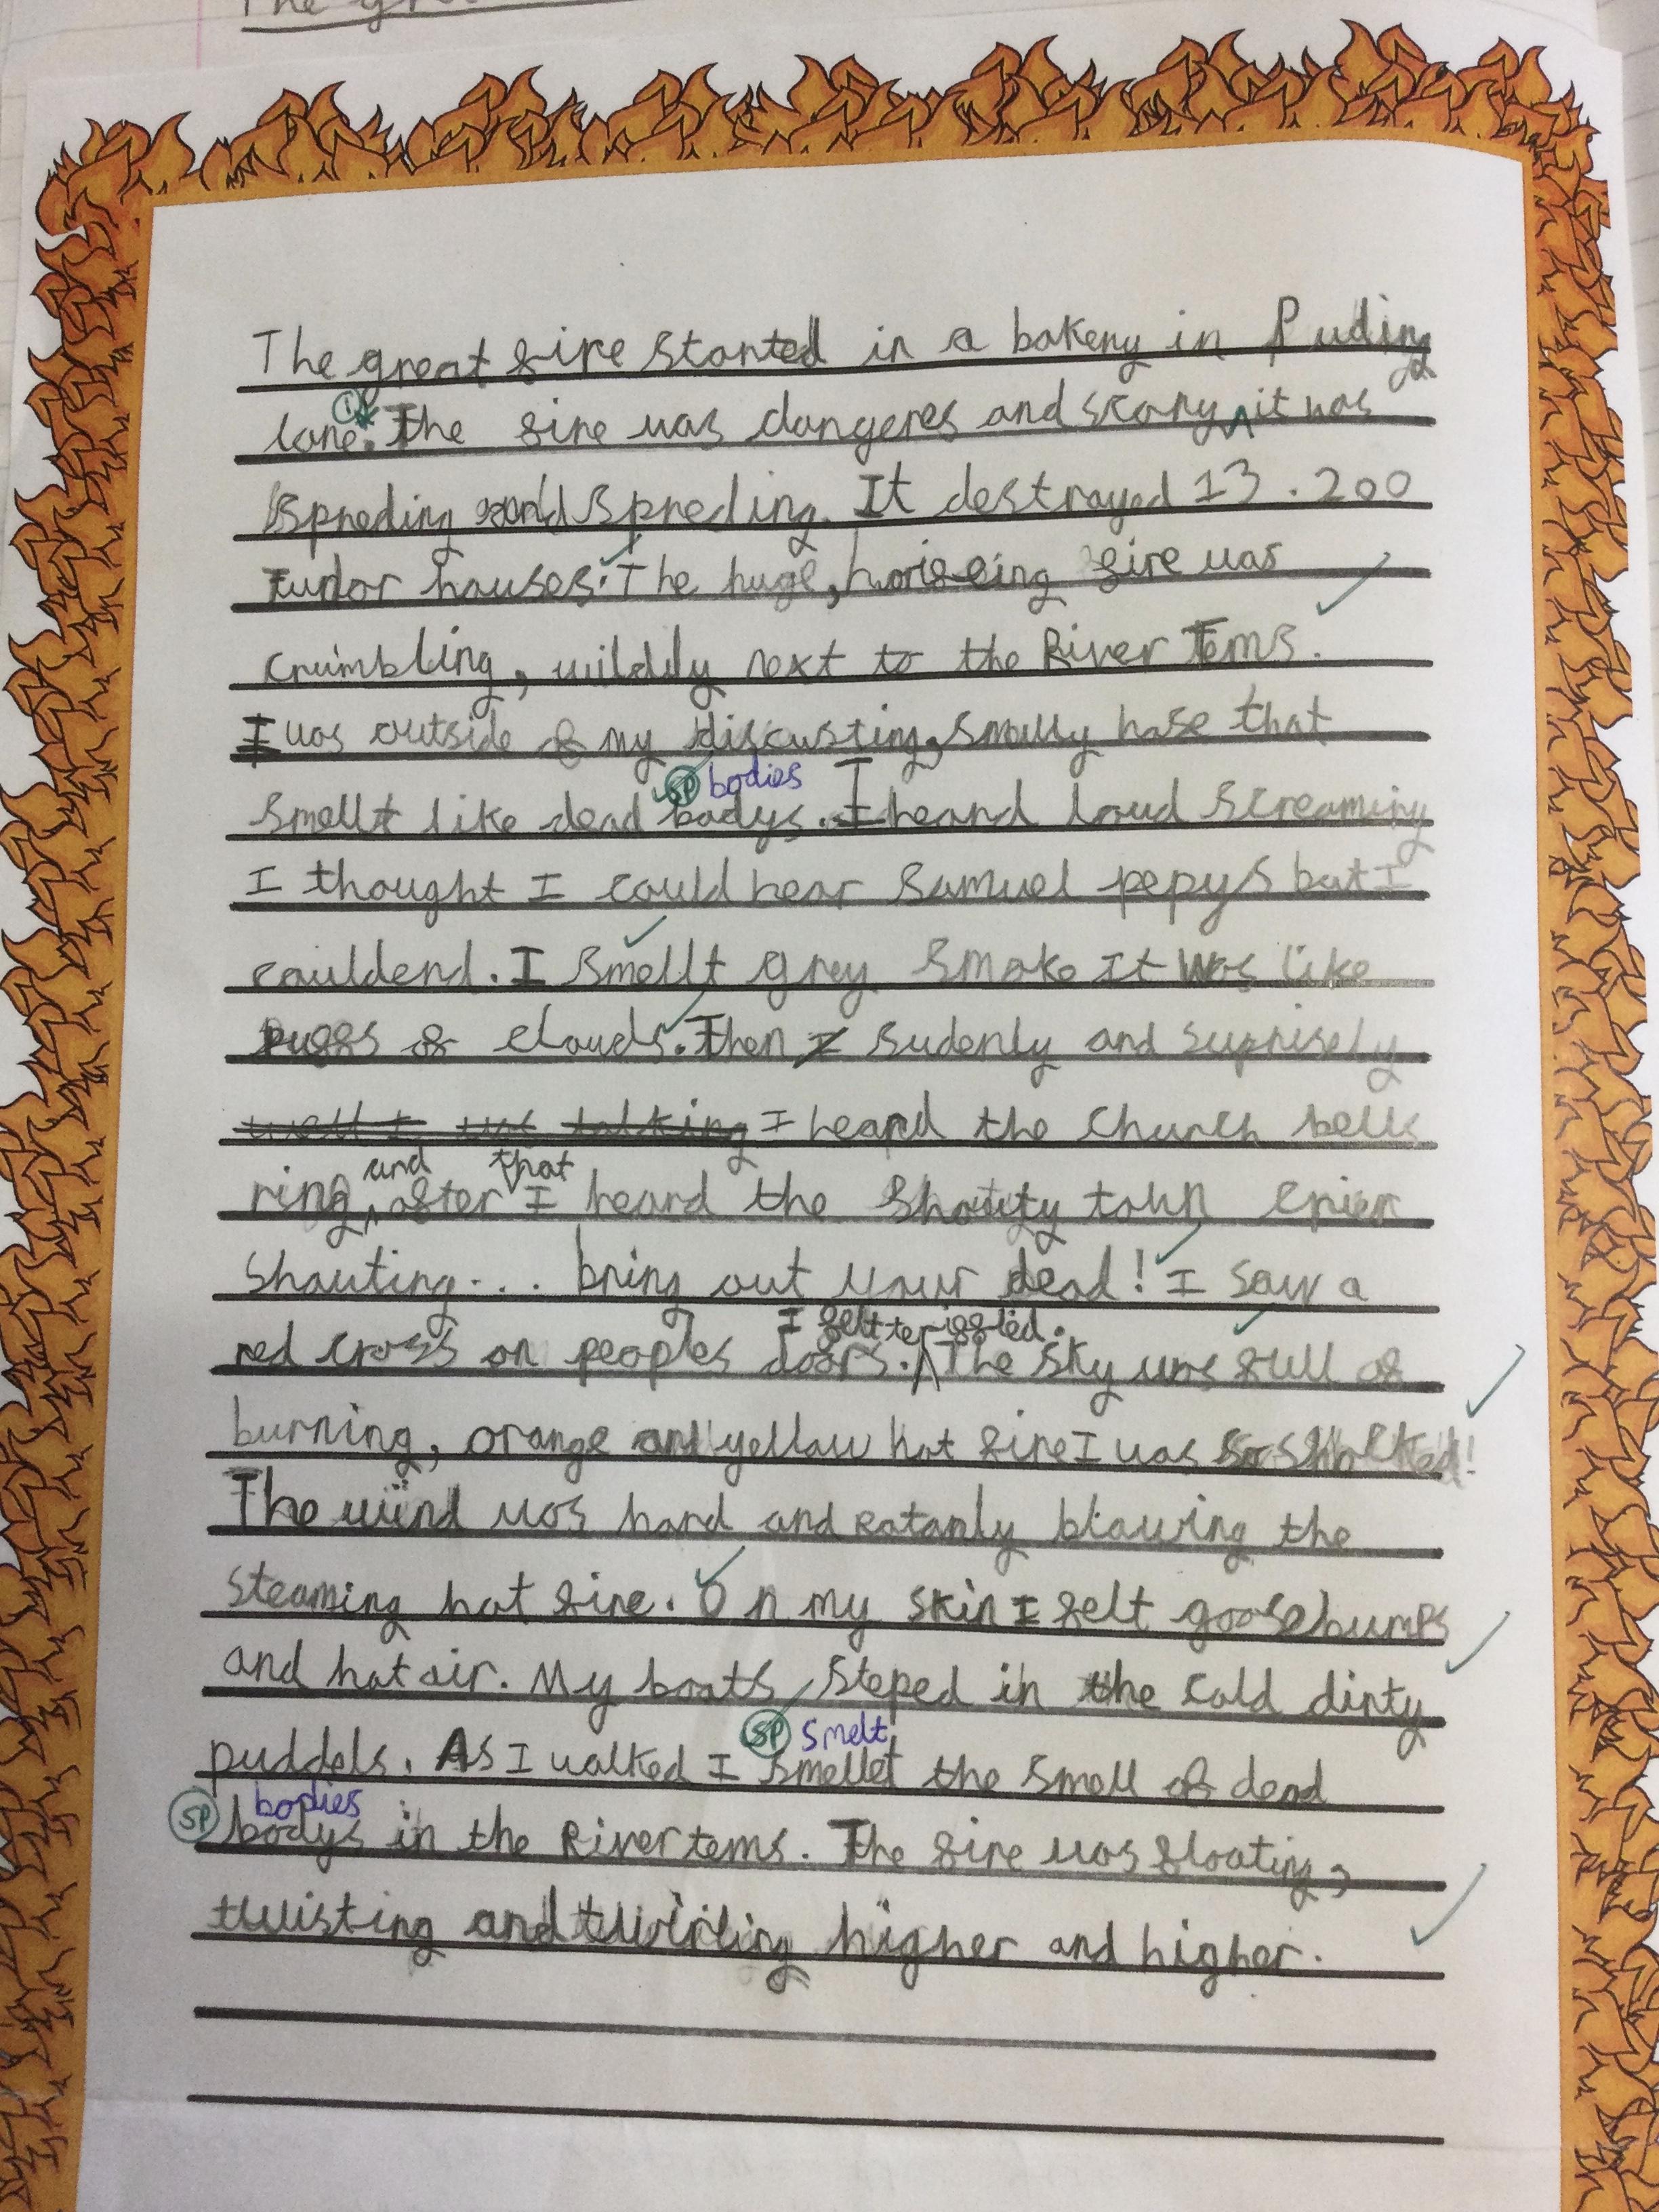 The gre
The great fire started in a bakery in Puding
lane. The fire was dangeres and scary it was
spreding and spreding. It destroyed 13.200
Tudor houses. The huge, horifeing fire was
crumbling, wildly next to the River Tems.
I was outside of my discusting, smelly hose that
SP bodies
smellt like dead bodys. I heard loud screaming
I thought I could hear Samuel pepys but I
couldend. I smellt grey smoke It was like
puffs of clouds. Then I sudenly and suprisely
well I was talking I heard the church bells
and that
ring after I heard the shouty town crier
shouting... bring out your dead! I saw a
I felt teriffied.
red cross on peoples doors. The sky was full of
burning, orange and yellow hot fire I was so shocked!
The wind was hard and blowing the
steaming hot fire. On my skin I felt goosebumps
and hot air. My boots steped in the cold dirty
SP smelt
puddels. As I walked I smellet the smell of dead
SP bodies
bodys in the River tems. The fire was floating,
twisting and twirling higher and higher.